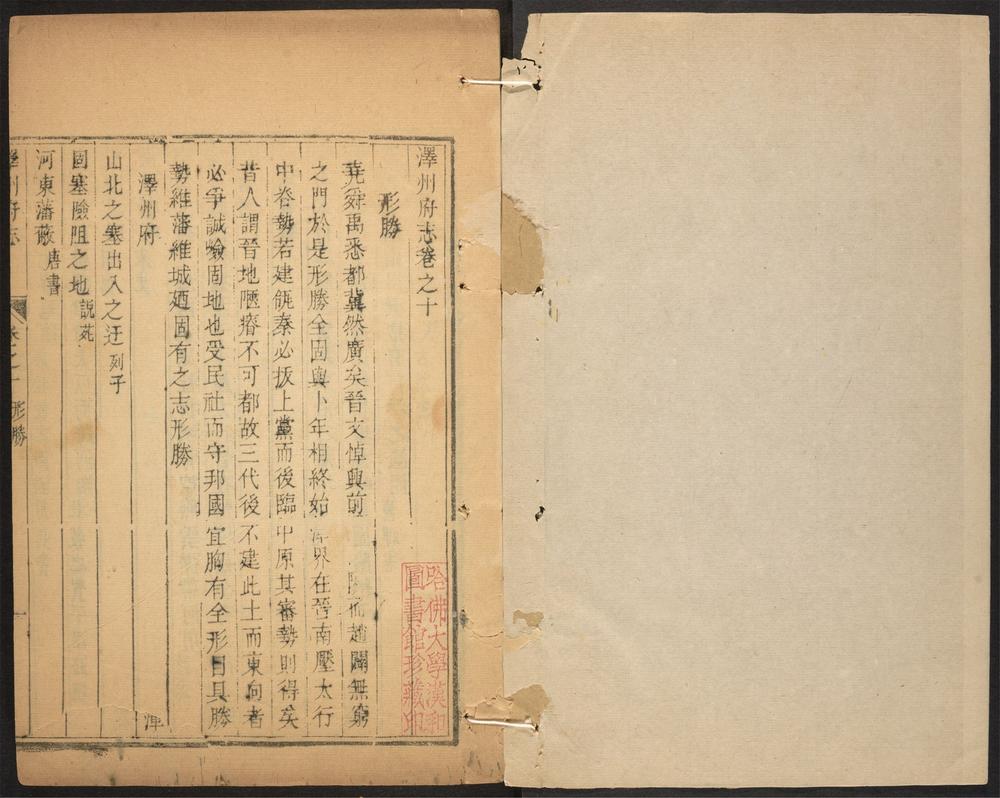 澤州府志卷之十
形勝
堯舜禹悉都冀然廣矣晉文悼興前而趙闢無窮
之門於是形勝全固與卜年相終始澤界在晉南壓太行
中卷勢若建瓴秦必拔上黨而後臨中原其審勢則得矣
昔人謂晉地陋瘠不可都故三代後不建此土而東向者
必爭誠險固地也受民社而守邦國宜胸有全形目具勝
勢維藩維城廼固有之志形勝
澤州府
山北之塞出入之迂列子
固塞險阻之地說苑
河東藩蔽唐書
澤州府志
卷之十
形勝
一
哈佛大學漢和
圖書館珍藏印